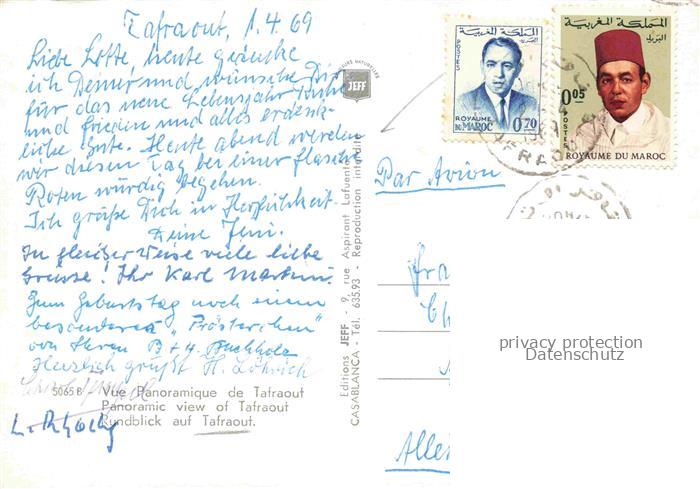 Tafraout, 1.4.69
Liebe Lotte, heute gedenke
ich Deiner und wünsche Dir
für das neue Lebensjahr
und Frieden und alles erdenk-
liche Gute. Heute abend werden
wir diesen Tag bei einer Flasche
Roten würdig begehen.
Ich grüße Dich in Herzlichkeit.
Deine Jeni.
In gleicher Weise viele liebe
Grüsse! Ihr Karl Martini.
Zum Geburtstag noch einen
besonderen „Prösterchen"
von Ihren B + H. Buchholz
Herzlich grüßt H.
5065 B - Vue Panoramique de Tafraout
Panoramic view of Tafraout
Rundblick auf Tafraout.
JEFF
Editions JEFF - 9, rue Aspirant Lafuente
CASABLANCA - Tél. 635.93 - Reproduction interdite
المملكة المغربية
البريد
POSTES
ROYAUME
DU MAROC
0,70
المملكة المغربية
البريد
0,05
POSTES
ROYAUME DU MAROC
Par Avion
privacy protection
Datenschutz